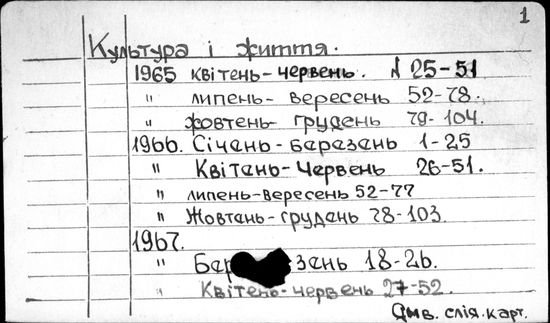 1
Культура і життя.
1965 квітень-червень. N 25-51
" липень- вересень 52-78.
" жовтень- грудень 79-104.
1966. Січень-березень 1-25
" Квітень-Червень 26-51.
" липень-вересень 52-77
" Жовтень-грудень 78-103.
1967.
" Бер зень 18-26.
" Квітень-червень 27-52.
Див. слід. карт.